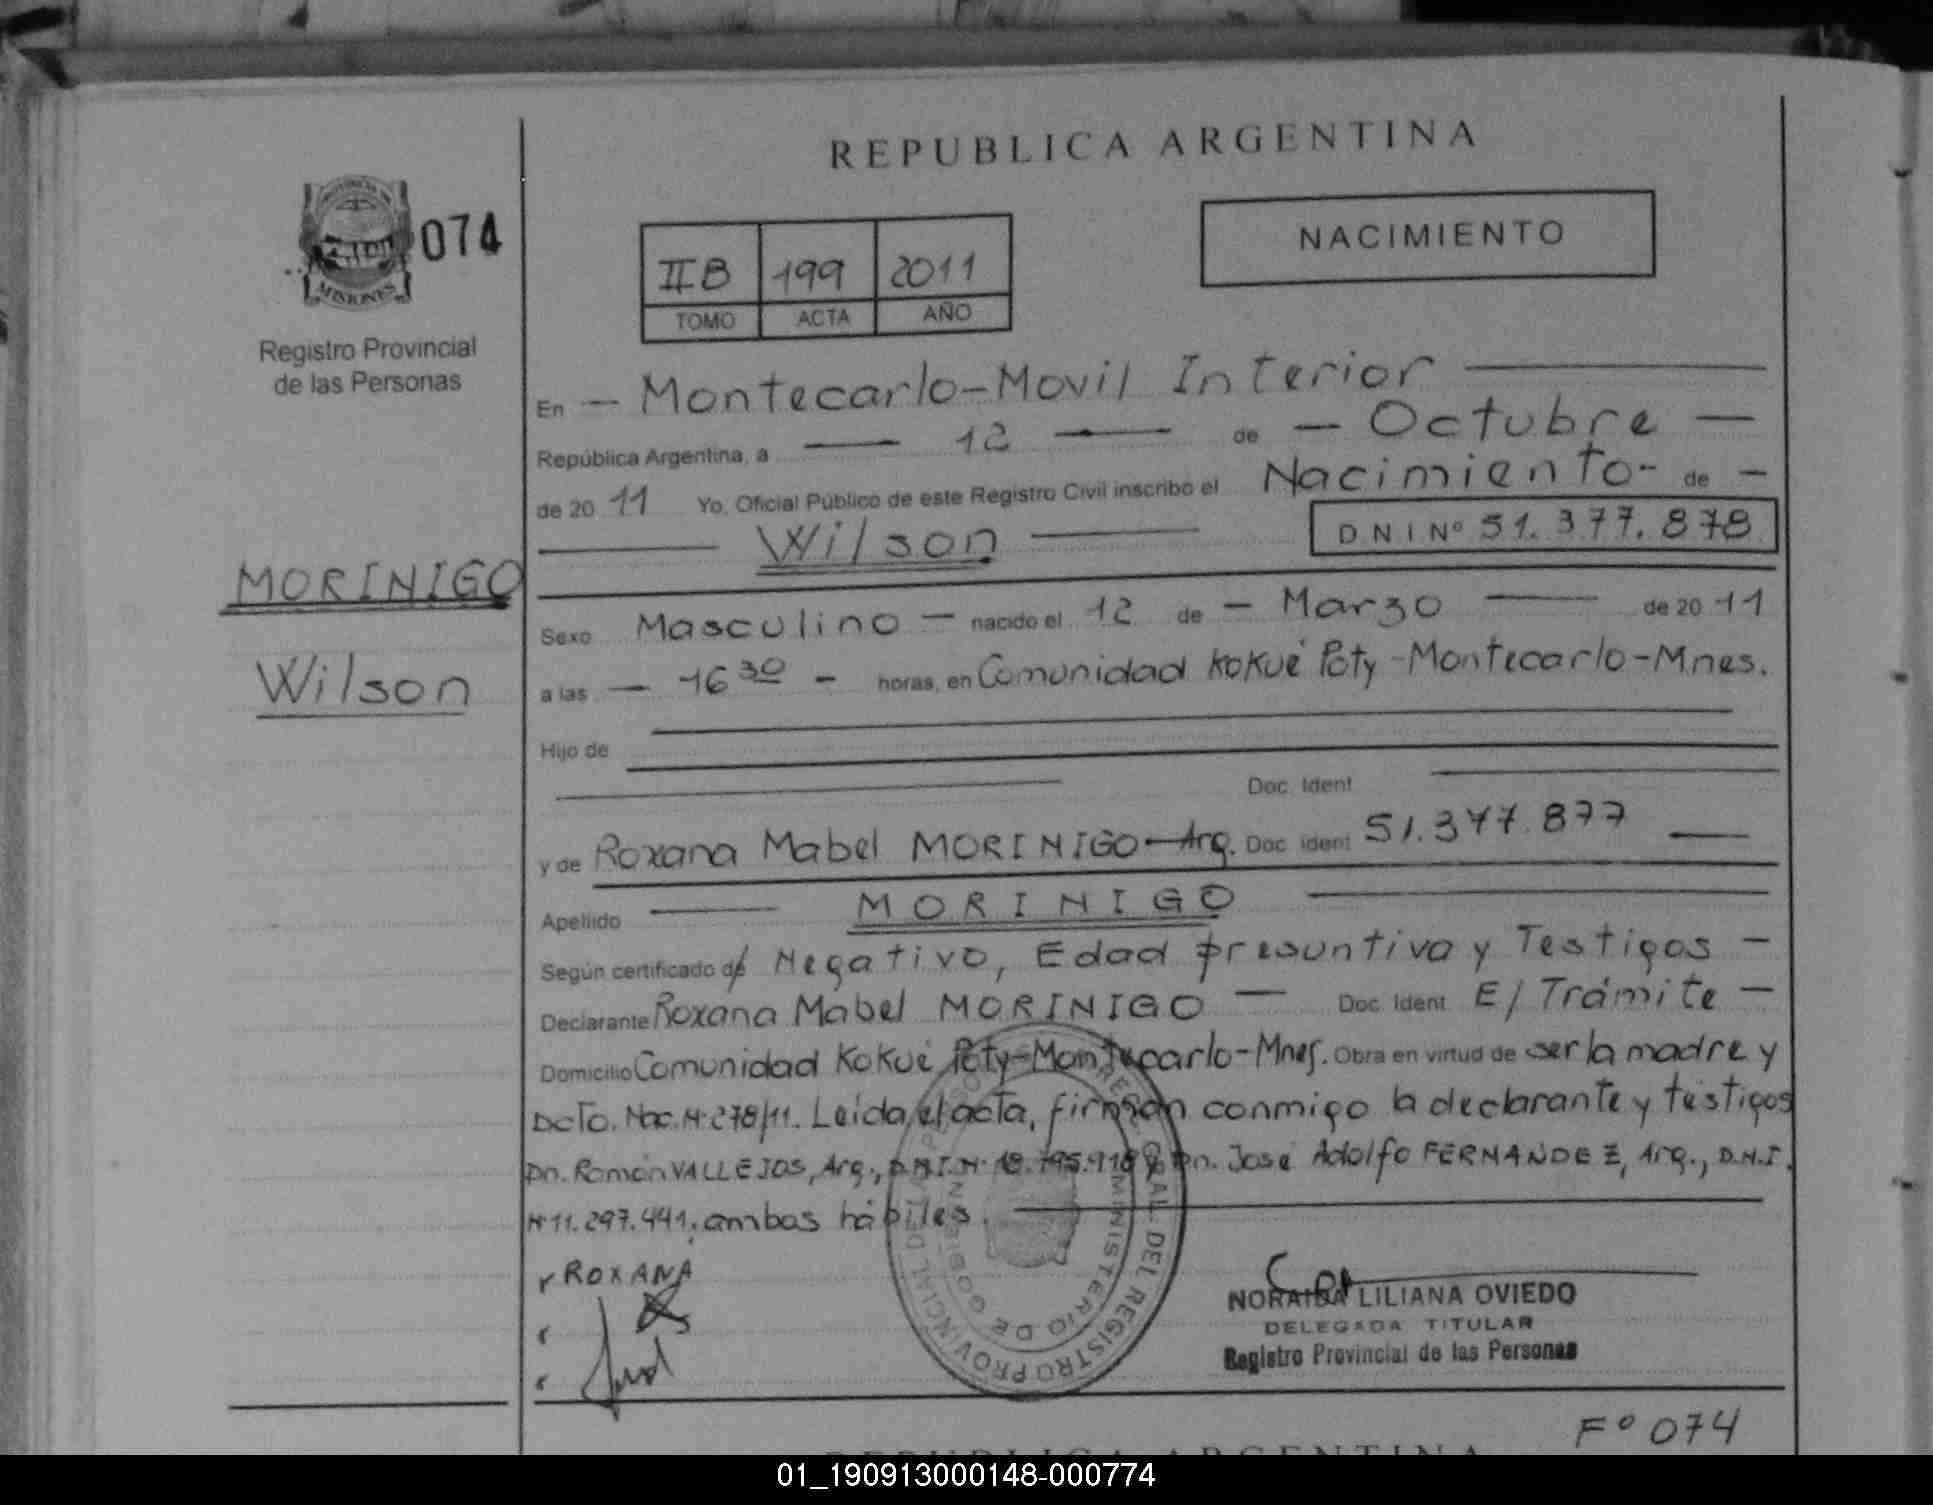 REPUBLICA ARGENTINA
NACIMIENTO
074
MISIONES
IIB 199 2011
TOMO ACTA AÑO
Registro Provincial
de las Personas
En — Montecarlo-Movil Interior
República Argentina, a — 12 — de — Octubre —
de 20 11 Yo, Oficial Público de este Registro Civil inscribo el Nacimiento- de -
Wilson
D N I Nº 51.377.878
MORINIGO
Wilson
Sexo Masculino — nacido el 12 de — Marzo — de 20 11
a las — 16 30 - horas, en Comunidad Kokué Poty-Montecarlo-Mnes.
Hijo de
Doc. Ident
y de Roxana Mabel MORINIGO-Arg. Doc ident 51.377.877 —
Apellido — MORINIGO
Según certificado d/ Negativo, Edad presuntiva y Testigos —
Declarante Roxana Mabel MORINIGO — Doc Ident E/Trámite —
Domicilio Comunidad Kokué Poty-Montecarlo-Mnes. Obra en virtud de ser la madre y
Dcto. Nac. Nº 278/11. Leída el acta, firman conmigo la declarante y testigos
Dn. Ramón VALLEJOS, Arg., D.N.I. Nº y Dn. José Adolfo FERNANDEZ, Arg., D.N.I.
Nº 11.297.441, ambos hábiles.
ROXANA
NORAIDA LILIANA OVIEDO
DELEGADA TITULAR
Registro Provincial de las Personas
GRAL. DEL REGISTRO PROVINCIAL DE
MINISTERIO DE GOBIERNO
Fº 074
REPUBLICA ARGENTINA
01_190913000148-000774